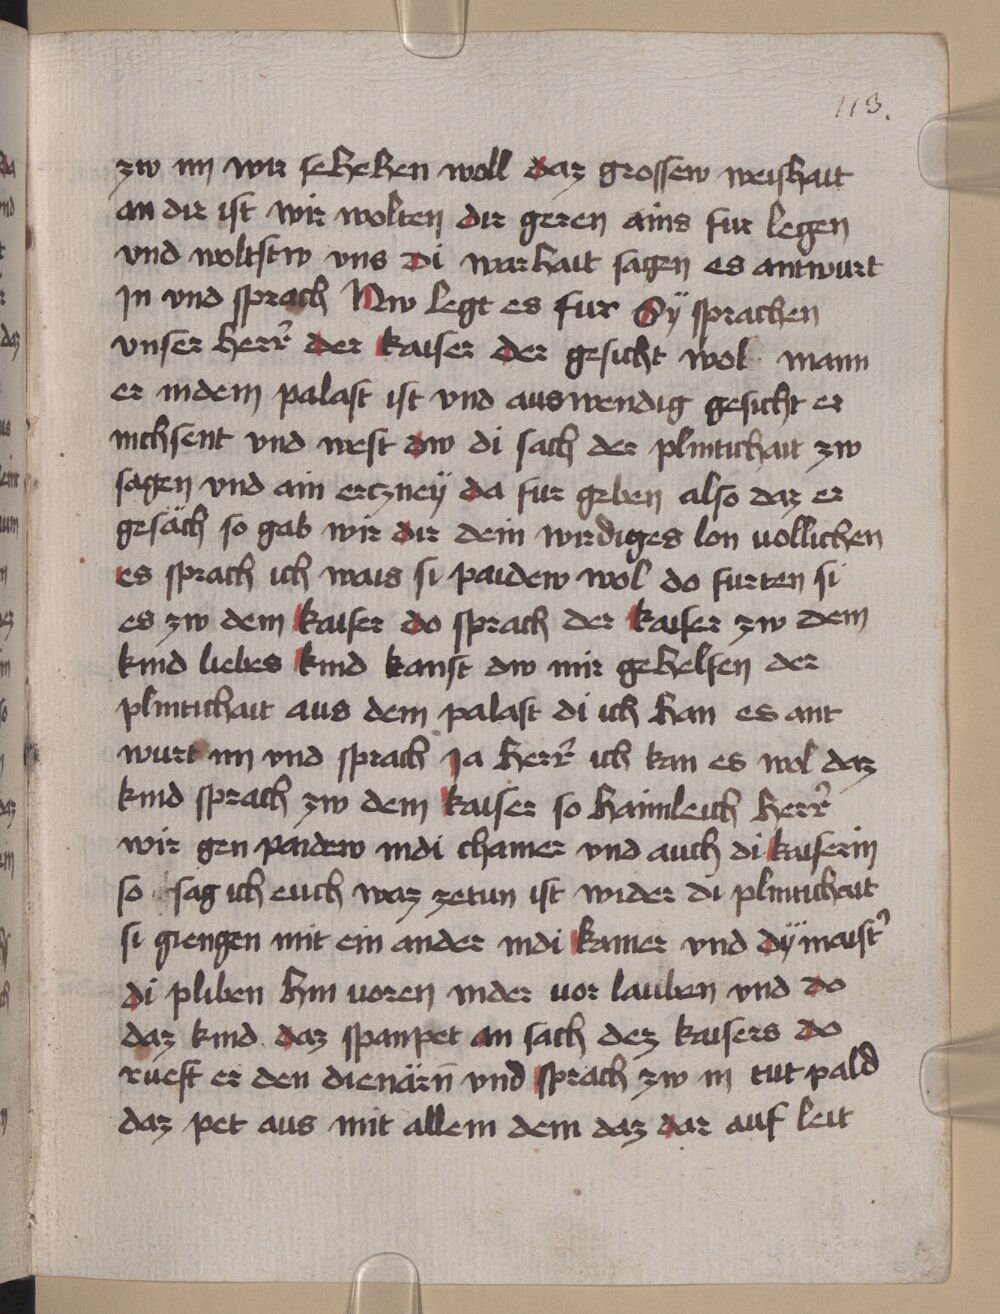 113.
zw im wir sehehen woll daz grossew weishait
an dir ist wir wolten dir geren ains fur legen
vnd woltstw vns di warhait sagen es antwurt
In vnd sprach Nw legt es fur Sÿ sprachen
vnser herr der kaiser der gesicht wol mann
er indem palast ist vnd auswendig gesicht er
nichsent vnd west dw di sach der plintichait zw
sagen vnd ain ercznej̈ da fur geben also daz er
gesäch so gab wir dir dein wirdiges lon vollichen
es sprach ich wais si paidew wol do furten si
es zw dem kaiser do sprach der kaiser zw dem
kind liebes kind kanst dw mir gehelfen der
plintichait aus dem palast di ich han es ant
wurt im vnd sprach Ja herr ich kan es wol daz
kind sprach zw dem kaiser so haimleich herr
wir gen paidew indi chamer vnd auch di kaiserin
so sag ich euch waz zetun ist wider di plintichait
si giengen mit ein ander indi kamer vnd dÿ maister
di pliben hin voren inder vor lauben vnd do
daz kind daz spanpet an sach dez kaisers do
rueft er den dienärn vnd sprach zw in tut pald
daz pet aus mit allem dem daz dar auf leit